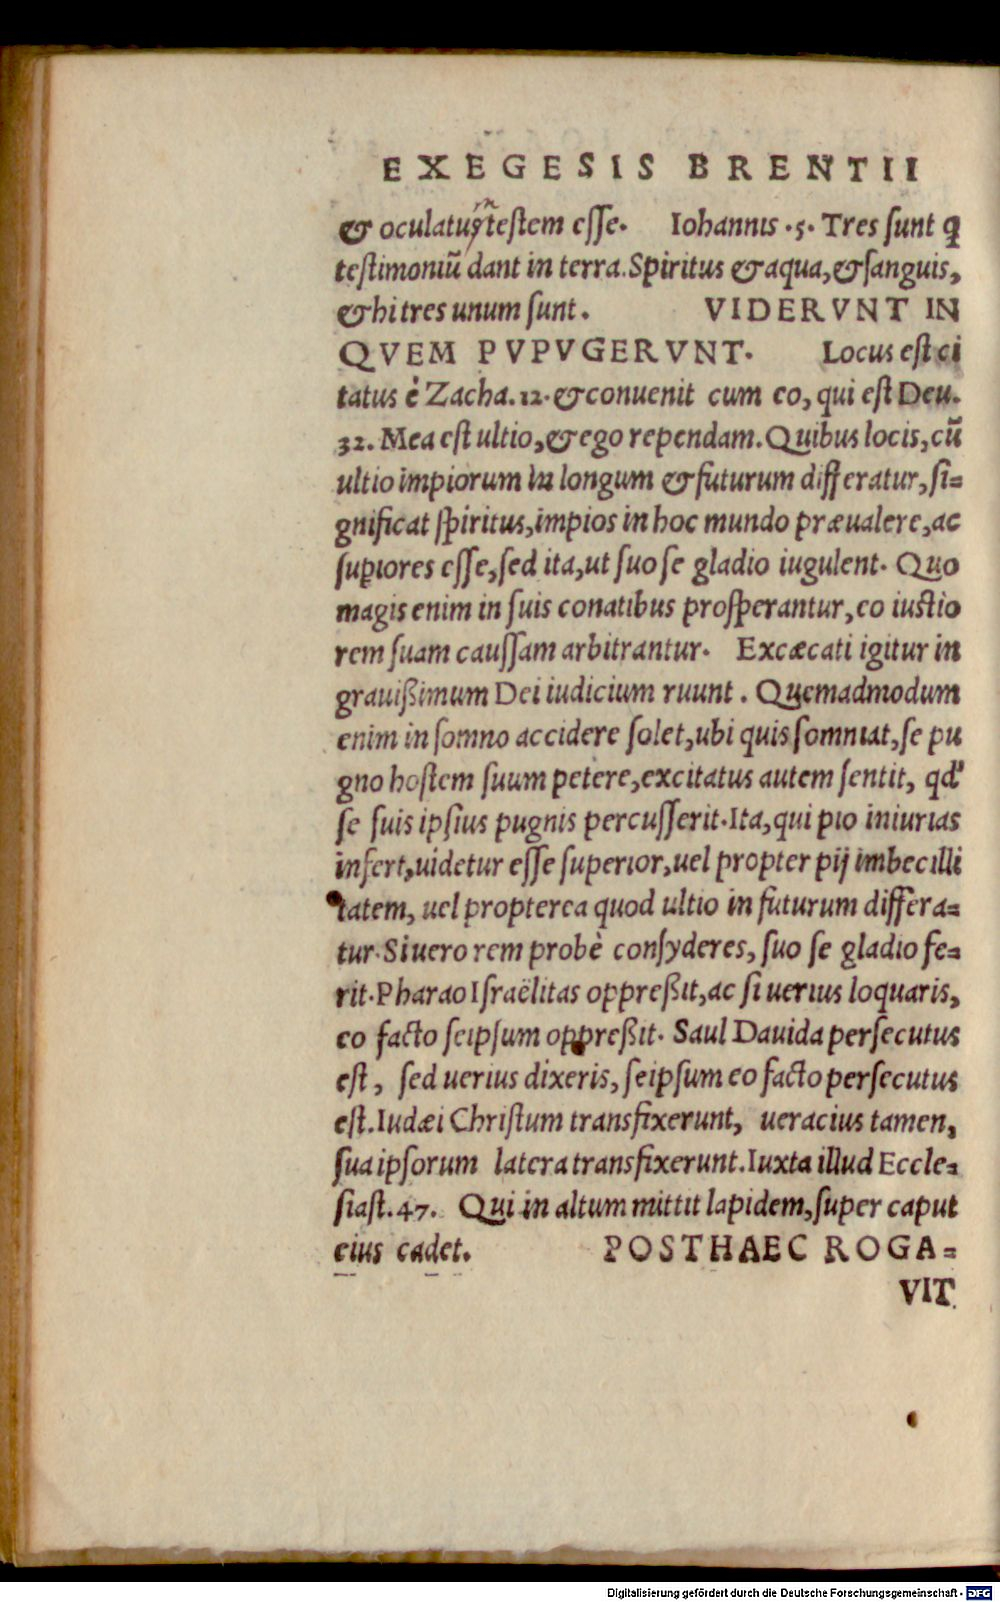 EXEGESIS BRENTII
& oculatum testem esse. Iohannis .5. Tres sunt q
testimoniū dant in terra. Spiritus & aqua, & sanguis,
& hi tres unum sunt. VIDERVNT IN
QVEM PVPVGERVNT. Locus est ci
tatus è Zacha. 12. & conuenit cum eo, qui est Deu.
32. Mea est ultio, & ego rependam. Quibus locis, cū
ultio impiorum in longum & futurum differatur, si=
gnificat spiritus, impios in hoc mundo præualere, ac
supiores esse, sed ita, ut suo se gladio iugulent. Quo
magis enim in suis conatibus prosperantur, eo iustio
rem suam caussam arbitrantur. Excæcati igitur in
grauißimum Dei iudicium ruunt. Quemadmodum
enim in somno accidere solet, ubi quis somniat, se pu
gno hostem suum petere, excitatus autem sentit, qd'
se suis ipsius pugnis percusserit. Ita, qui pio iniurias
infert, uidetur esse superior, uel propter pij imbecilli
tatem, uel propterea quod ultio in futurum differa=
tur. Si uero rem probè consyderes, suo se gladio fe=
rit. Pharao Israëlitas oppreßit, ac si uerius loquaris,
eo facto seipsum oppreßit. Saul Dauida persecutus
est, sed uerius dixeris, seipsum eo facto persecutus
est. Iudæi Christum transfixerunt, ueracius tamen,
sua ipsorum latera transfixerunt. Iuxta illud Eccle=
siast. 47. Qui in altum mittit lapidem, super caput
eius cadet. POSTHAEC ROGA=
VIT
Digitalisierung gefördert durch die Deutsche Forschungsgemeinschaft - DFG